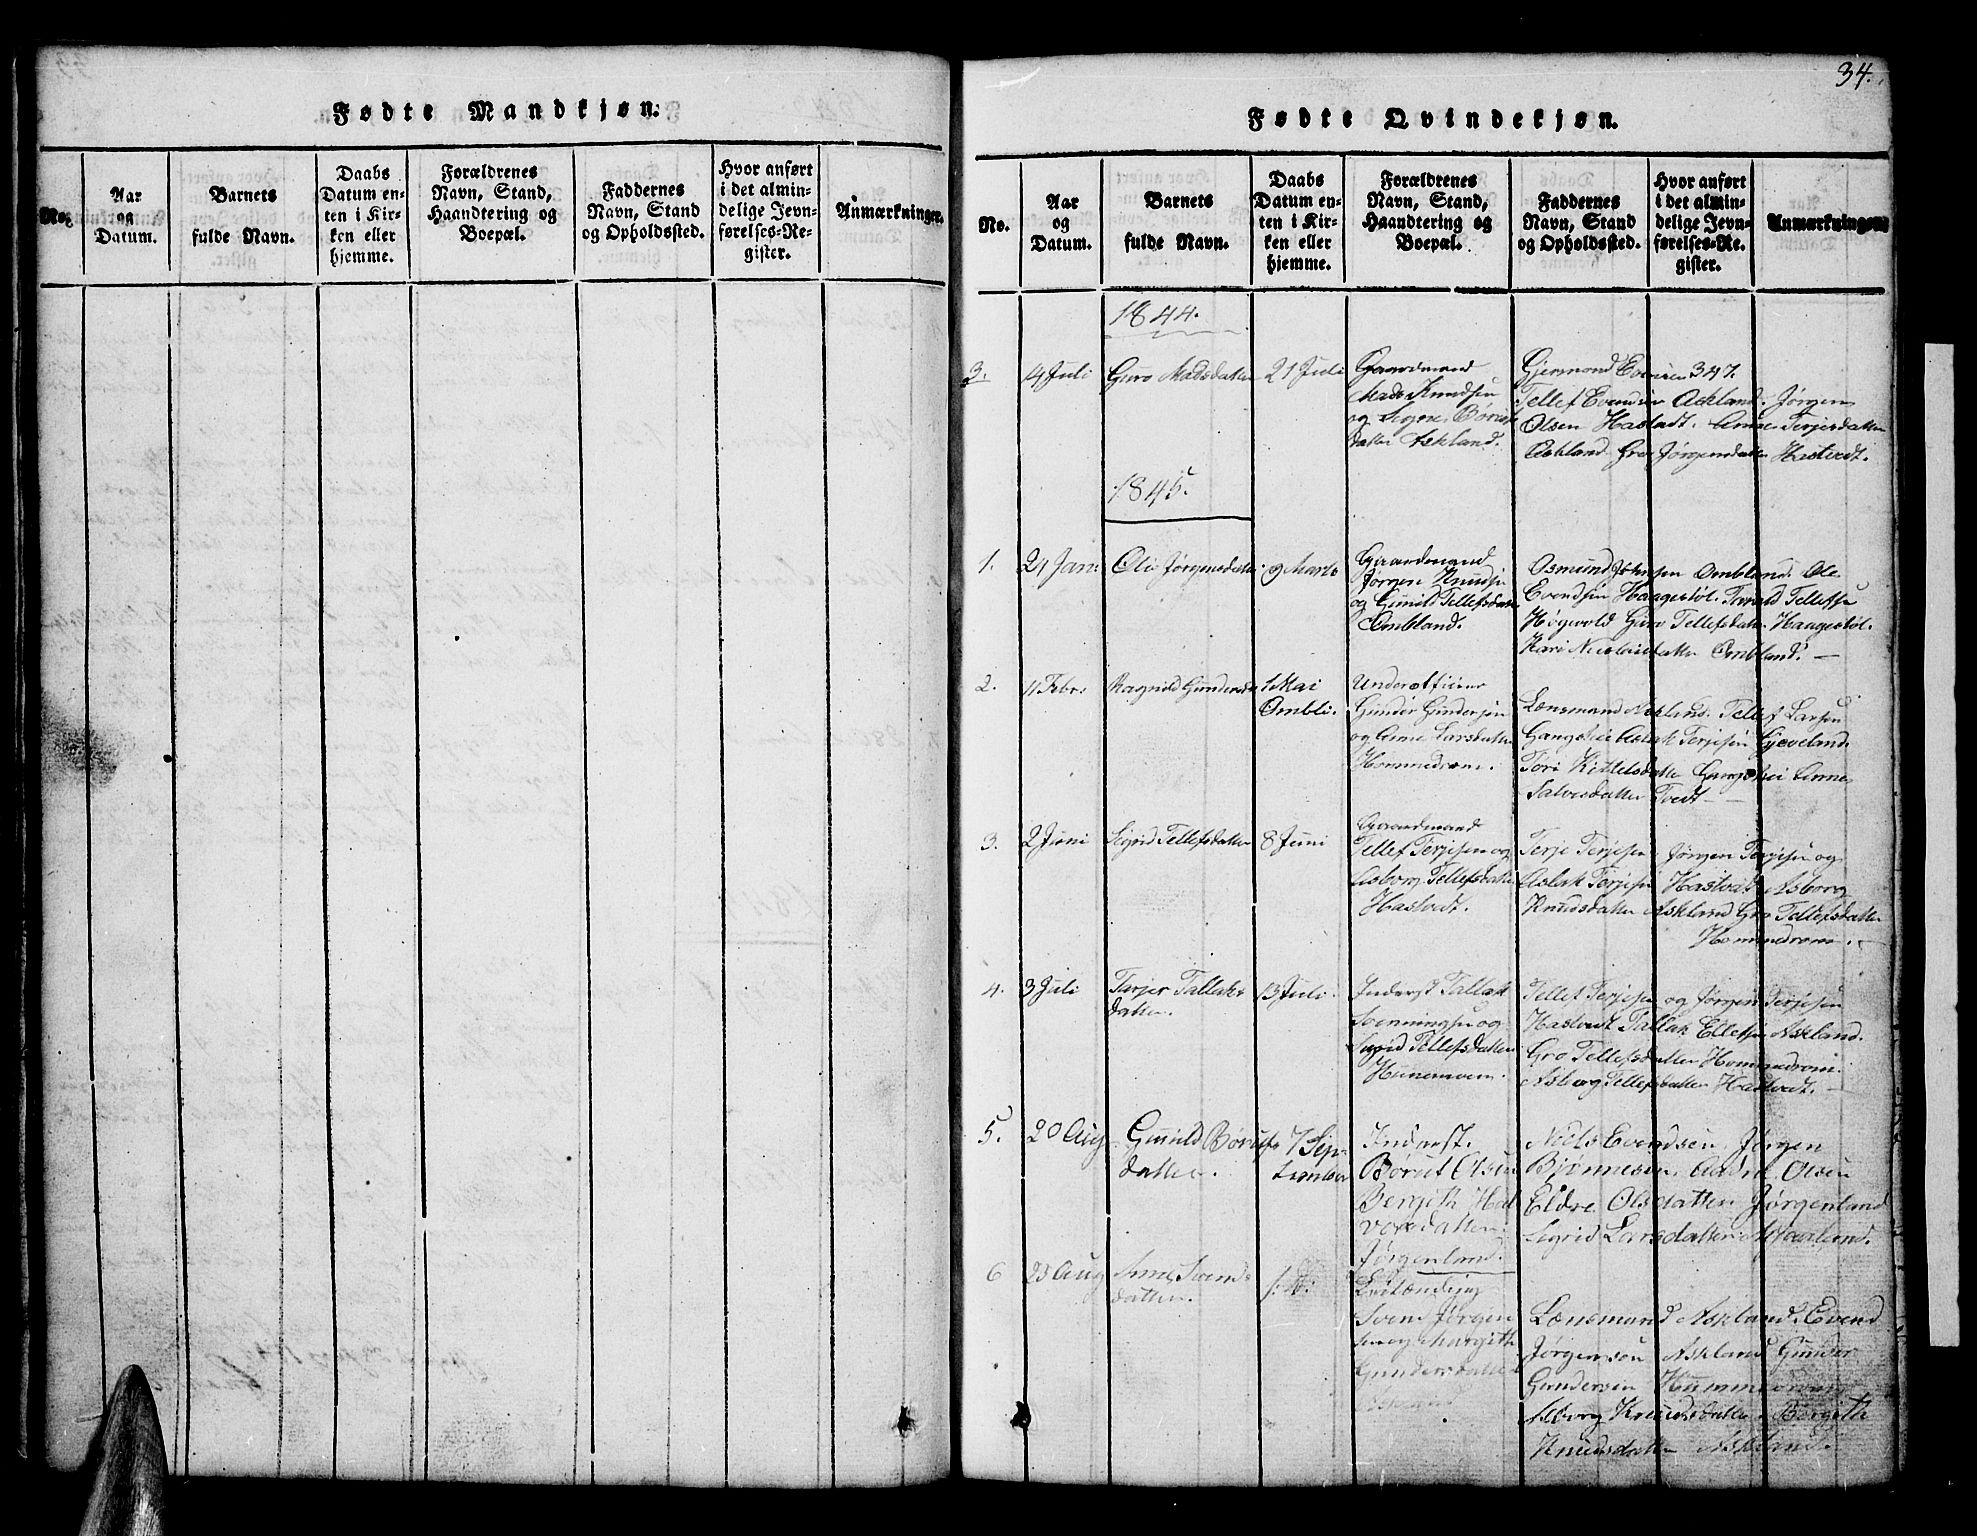 Fødte Mandkjøn.
No.
Aar
og
Datum.
Barnets
fulde Navn.
Daabs
Datum en-
ten i Kir-
ken eller
hjemme.
Forældrenes
Navn, Stand,
Haandtering og
Boepæl.
Faddernes
Navn, Stand
og Opholdssted.
Hvor anført
i det almin-
delige Jevn-
førelses-Re-
gister.
Anmærkninger.
34.
Fødte Qvindekjøn.
No.
Aar
og
Datum.
Barnets
fulde Navn.
Daabs
Datum en-
ten i Kir-
ken eller
hjemme.
Forældrenes
Navn, Stand,
Haandtering og
Boepæl.
Faddernes
Navn, Stand
og Opholdssted.
Hvor anført
i det almin-
delige Jevn-
førelses-Re-
gister.
Anmærkninger
1844.
3.
14 Juli
Guro Madsdatter
21 Juli
Gaardmand
Mads Knudsen
og Signe
datter Askland.
Gjermond
Tellef Evendsen Askland. Jørgen
Olsen Hastedt. Anne Terjesdatter
Askland Gro Jørgensdatter Hastvedt.
1845.
1.
24 Jan:
Oli Jørgensdatter
9 Marts
Gaardmand
Jørgen Knudsen
og Gunild Tellefsdatter
Ombland.
Osmund Johnsen Ombland. Ole
Evendsen Haagestøl. Tellefsen
Høgvold Guro Tellefsdatter Haagestøl.
Kari Nicolaisdatter Ombland. —
2.
11 Febr:
Ragnild Gunders
1 Mai
Ombli.
Underofficier
Gunder Gundersen
og Anne Larsdatter
Hommedrom.
Lænsmand Askland. Tellef Larsen
Aslak Terjesen
Tori Kittelsdatter Anne
Salvesdatter Tvedt —
3.
2 Juni
Sigrid Tellefsdatter
8 Juni
Gaardmand
Tellef Terjesen og
Asborg Tellefsdatter
Hastvedt.
Terje Terjesen Jørgen Terjesen og
Aslak Terjesen Hastvedt Asborg
Knudsdatter Askland Gro Tellefsdatter
Hommedrom. —
4.
3 Juli
Tallaks
datter.
13 Juli.
Inderst Tallak
Svenningsen og
Sigrid Tellefsdatter
Tellef Terjesen og Jørgen Terjesen
Hastvedt Tallak Ellefsen Askland.
Gro Tellefsdatter Hommedrom.
Asborg Tellefsdatter Hastvedt. —
5.
20 Aug
Gunild Børufs
datter.
7 Sep-
tember
Inderst.
Børuf Olsen
Bergith Hal
vorsdatter
Jørgenland.
Niels Evendsen Jørgen
Bjønnesen, Olsen
Eldre Olsdatter Jørgenland
Sigrid Larsdatter
6
23 Aug
Anne Svends-
datter.
Svend Jørgen
sen og Margith
Gundersdatter
Askland
Lænsmand Askland. Evend
Jørgensen Askland Gunder
Gundersen Hommedrom
Asborg Knudsdatter Bergith
Knudsdatter Askland.